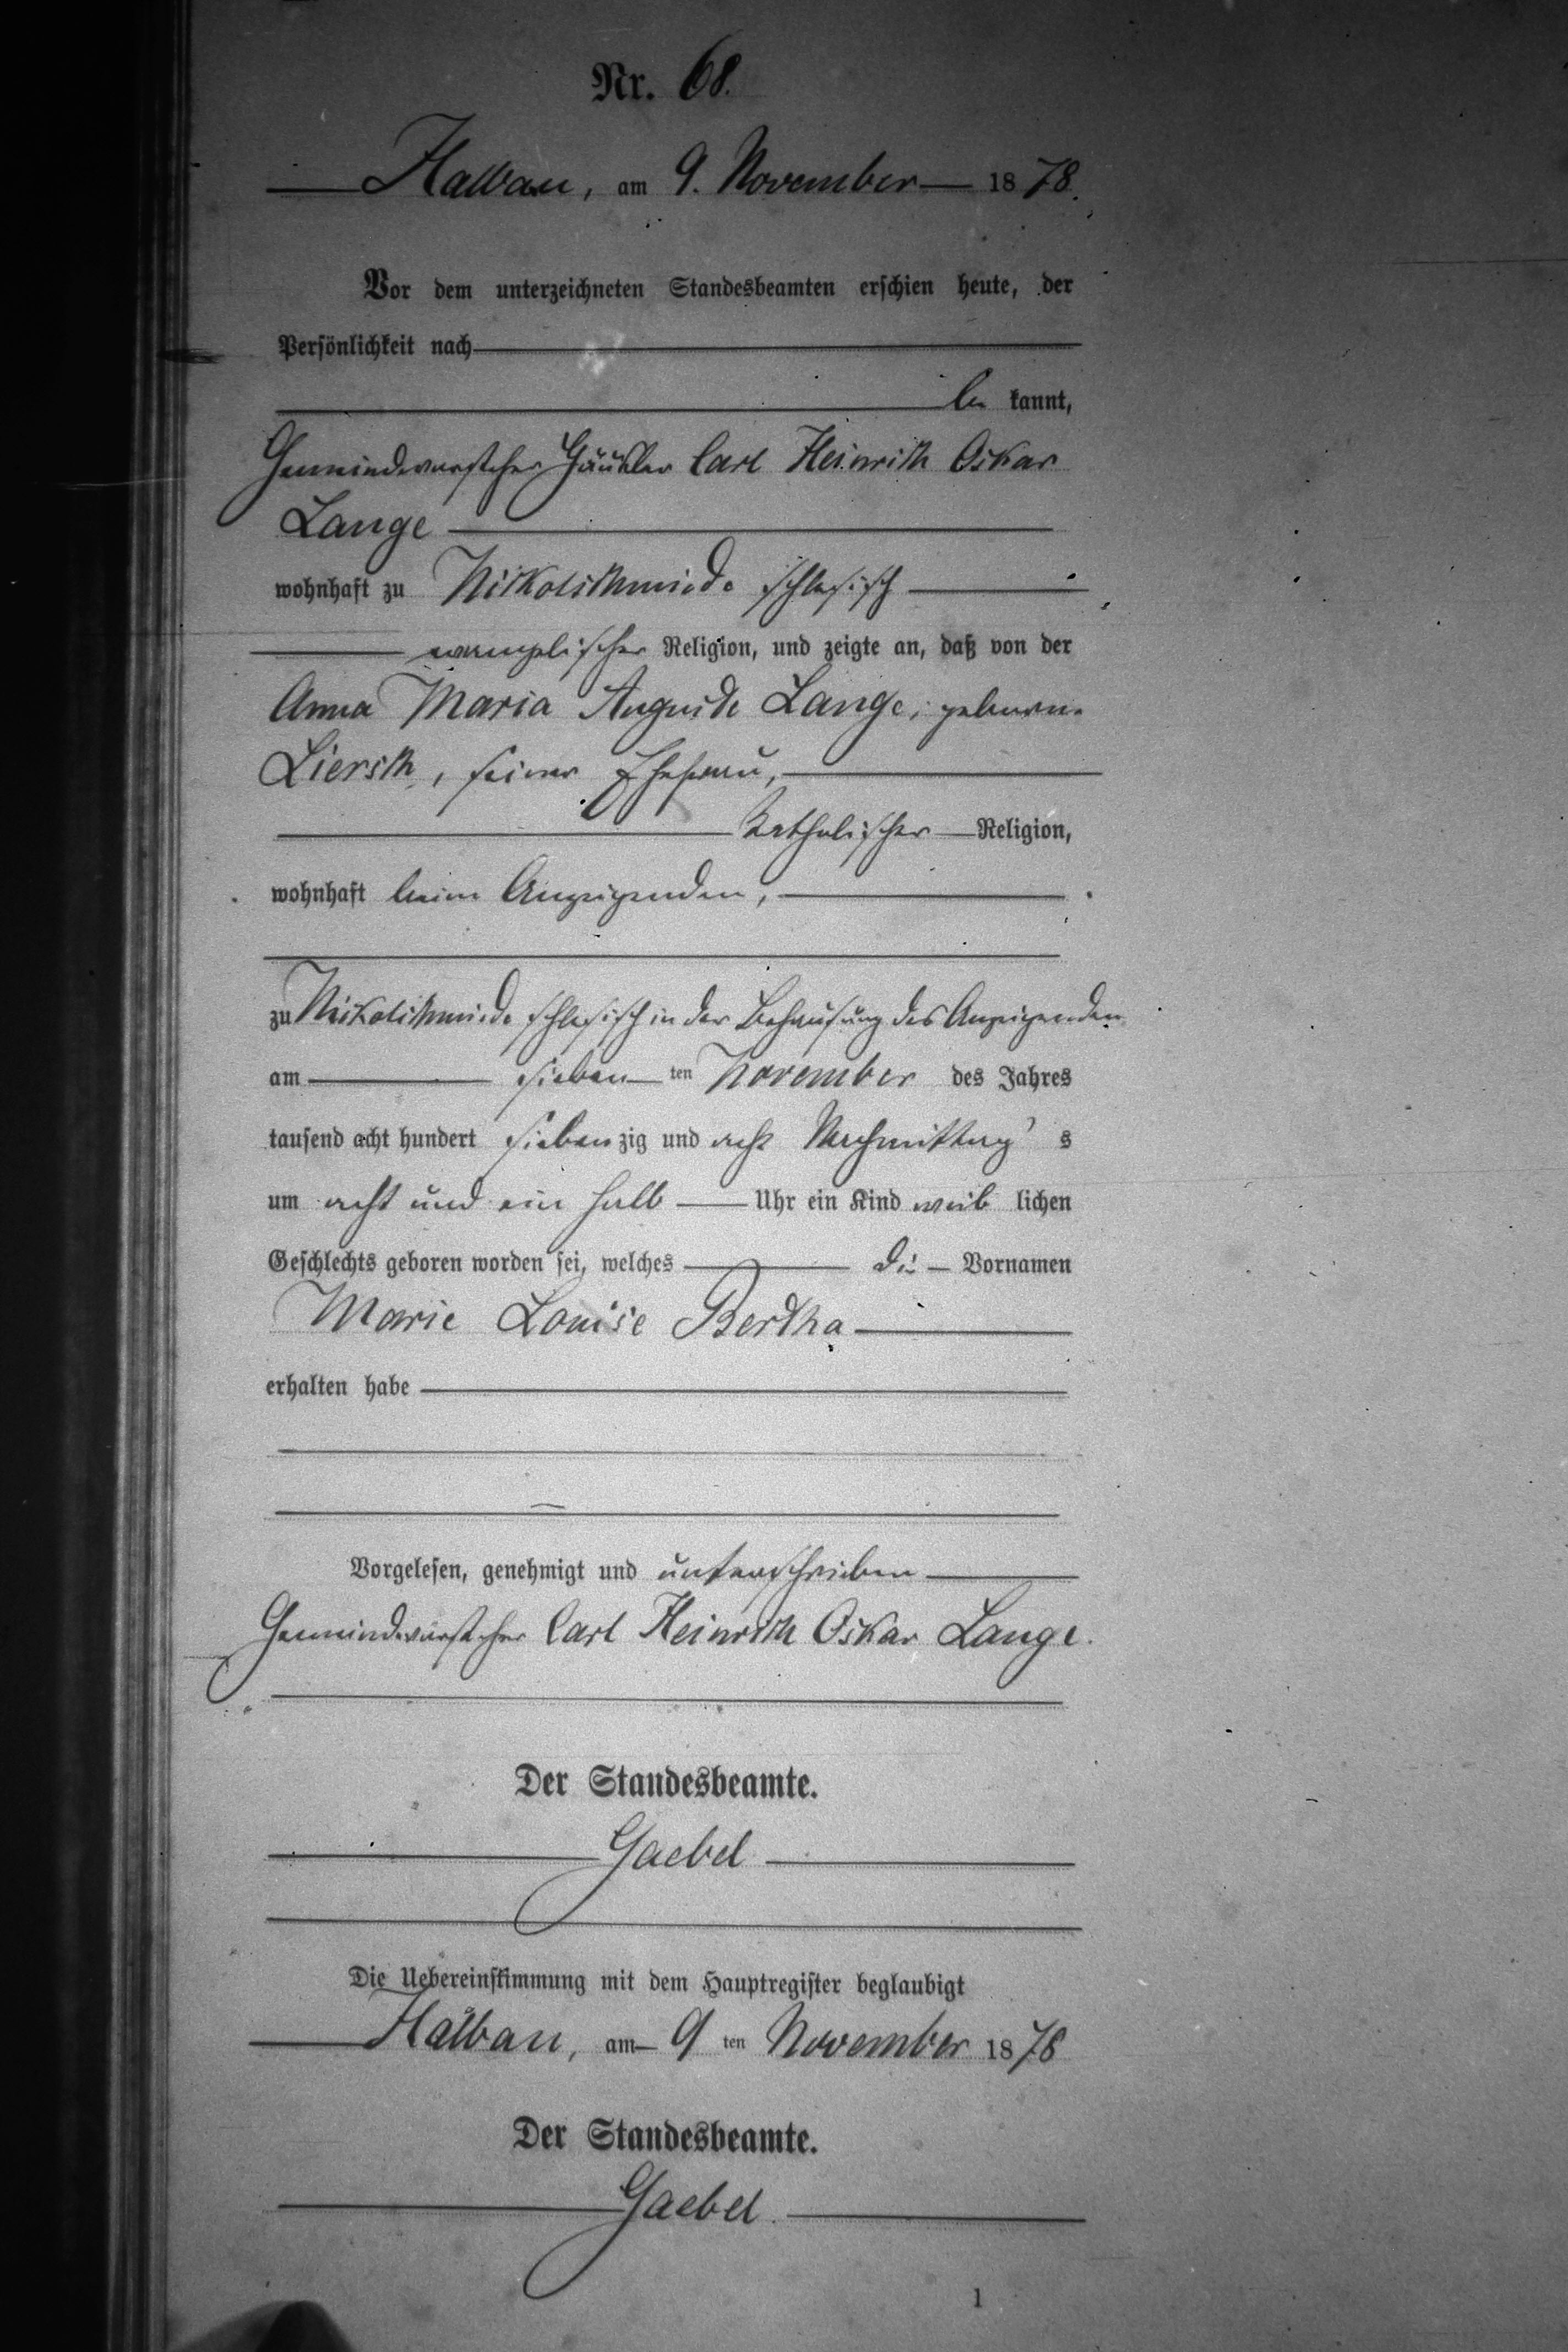 Nr. 68.
Halbau, am 9. November 1878.
Vor dem unterzeichneten Standesbeamten erschien heute, der
Persönlichkeit nach
be kannt,
Gemeindevorsteher Häusler Carl Heinrich Oskar
Lange
wohnhaft zu Nikolschmiede schlesisch
evangelischer Religion, und zeigte an, daß von der
Anna Maria Auguste Lange, geborene
Liersch, seiner Ehefrau,
katholischer Religion,
wohnhaft beim Anzeigenden,
zu Nikolschmiede schlesisch in der Behausung des Anzeigenden
am sieben ten November des Jahres
tausend acht hundert siebenzig und acht Nachmittag s
um acht und ein halb Uhr ein Kind weib lichen
Geschlechts geboren worden sei, welches die Vornamen
Marie Louise Bertha
erhalten habe
Vorgelesen, genehmigt und unterschrieben
Gemeindevorsteher Carl Heinrich Oskar Lange.
Der Standesbeamte.
Gaebel
Die Uebereinstimmung mit dem Hauptregister beglaubigt
Halbau, am 9 ten November 1878
Der Standesbeamte.
Gaebel.
1